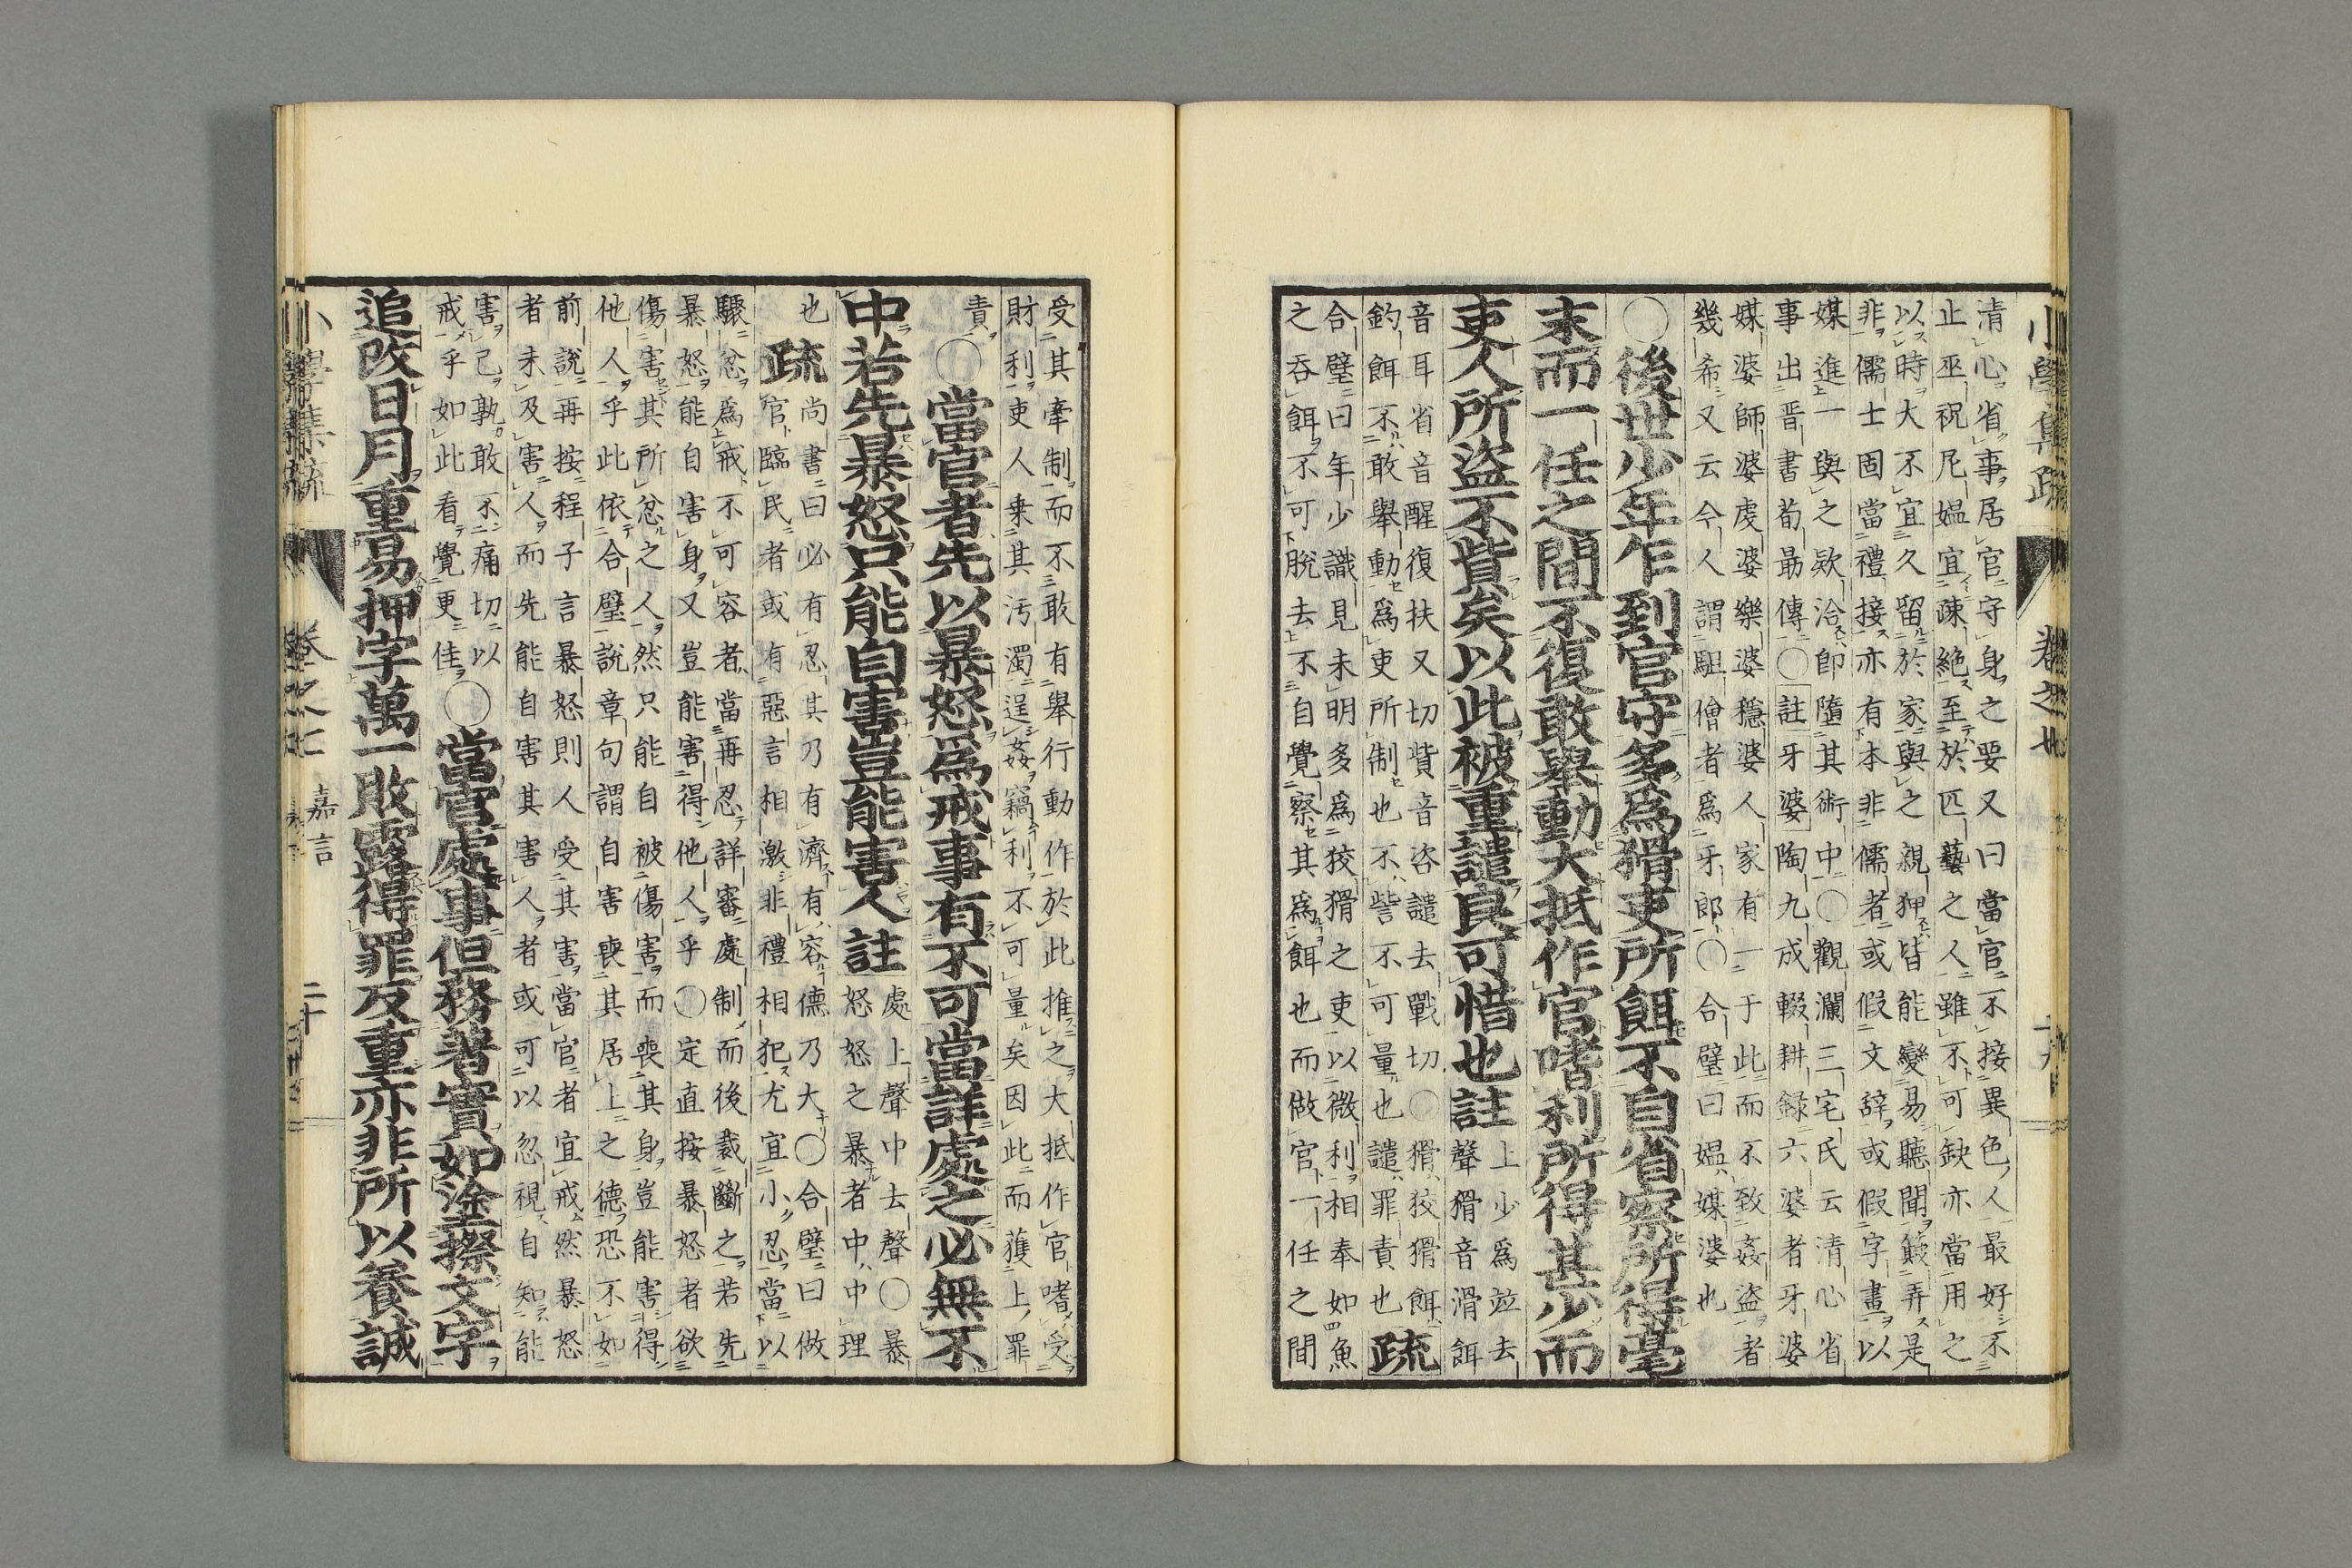 小學集疏
卷之七
清心省事居官守身之要又曰當官不接異色人最好不
止巫祝尼媼宜疎絶至於匹藝之人雖不可缺亦當用之
以時大不宜久留於家與之親狎皆能變易聽聞簸弄是
非儒士固當禮接亦有本非儒者或假文辭或假字畫以
媒進一與之欵洽即墮其術中○觀瀾三宅氏云清心省
事出晋書荀勗傳○註牙婆陶九成輟耕録六婆者牙婆
媒婆師婆虔婆樂婆穩婆人家有一于此而不致姦盗者
幾希又云今人謂駔儈者爲牙郎○合璧曰媼媒婆也
○後世少年乍到官守多爲猾吏所餌不自省察所得毫
末而一任之間不復敢舉動大抵作官嗜利所得甚少而
吏人所盗不貲矣以此被重譴良可惜也註上少爲竝去聲猾音滑餌
音耳省音醒復扶又切貲音咨譴去戰切○猾狡猾餌
釣餌不敢舉動爲吏所制也不訾不可量也譴罪責也疏
合璧曰年少識見未明多爲狡猾之吏以微利相奉如魚
之吞餌不可脱去不自覺察其爲餌也而做官一任之間
受其牽制而不敢有舉行動作於此推之大抵作官嗜受
財利吏人乗其汚濁逞姦竊利不可量矣因此而獲上罪
責○當官者先以暴怒爲戒事有不可當詳處之必無不
中若先暴怒只能自害豈能害人註處上聲中去聲○暴怒怒之暴者中中理
也疏尚書曰必有忍其乃有濟有容德乃大○合璧曰做官臨民者或有惡言相激非禮相犯尤宜小忍當以
驟忿爲戒不可容者當再忍詳審處制而後裁斷之若先
暴怒能自害身又豈能害得他人乎○定直按暴怒者欲
傷害其所忿之人然只能自被傷害而喪其身豈能害得
他人乎此依合璧說章句謂自害喪其居上之德恐不如
前說再按程子言暴怒則人受其害當官者宜戒然暴怒
者未及害人而先能自害其害人者或可以忽視自知能
害己孰敢不痛切以
戒乎如此看覺更佳○當官處事但務著實如塗擦文字
追改日月重易押字萬一敗露得罪反重亦非所以養誠
小學集疏
卷之七
嘉言
二十